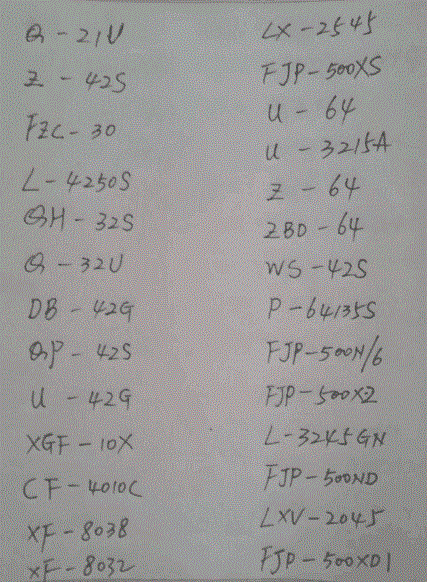 Q-21U
Z-42S
FZC-30
L-4250S
QH-32S
Q-32U
DB-42G
QP-42S
U-42G
XGF-10X
CF-4010C
XF-8038
XF-8032
LX-2545
FJP-500XS
U-64
U-3215A
Z-64
ZBD-64
WS-42S
P-64135S
FJP-500N/6
FJP-500XZ
L-3245GN
FJP-500ND
LXV-2045
FJP-500XD1